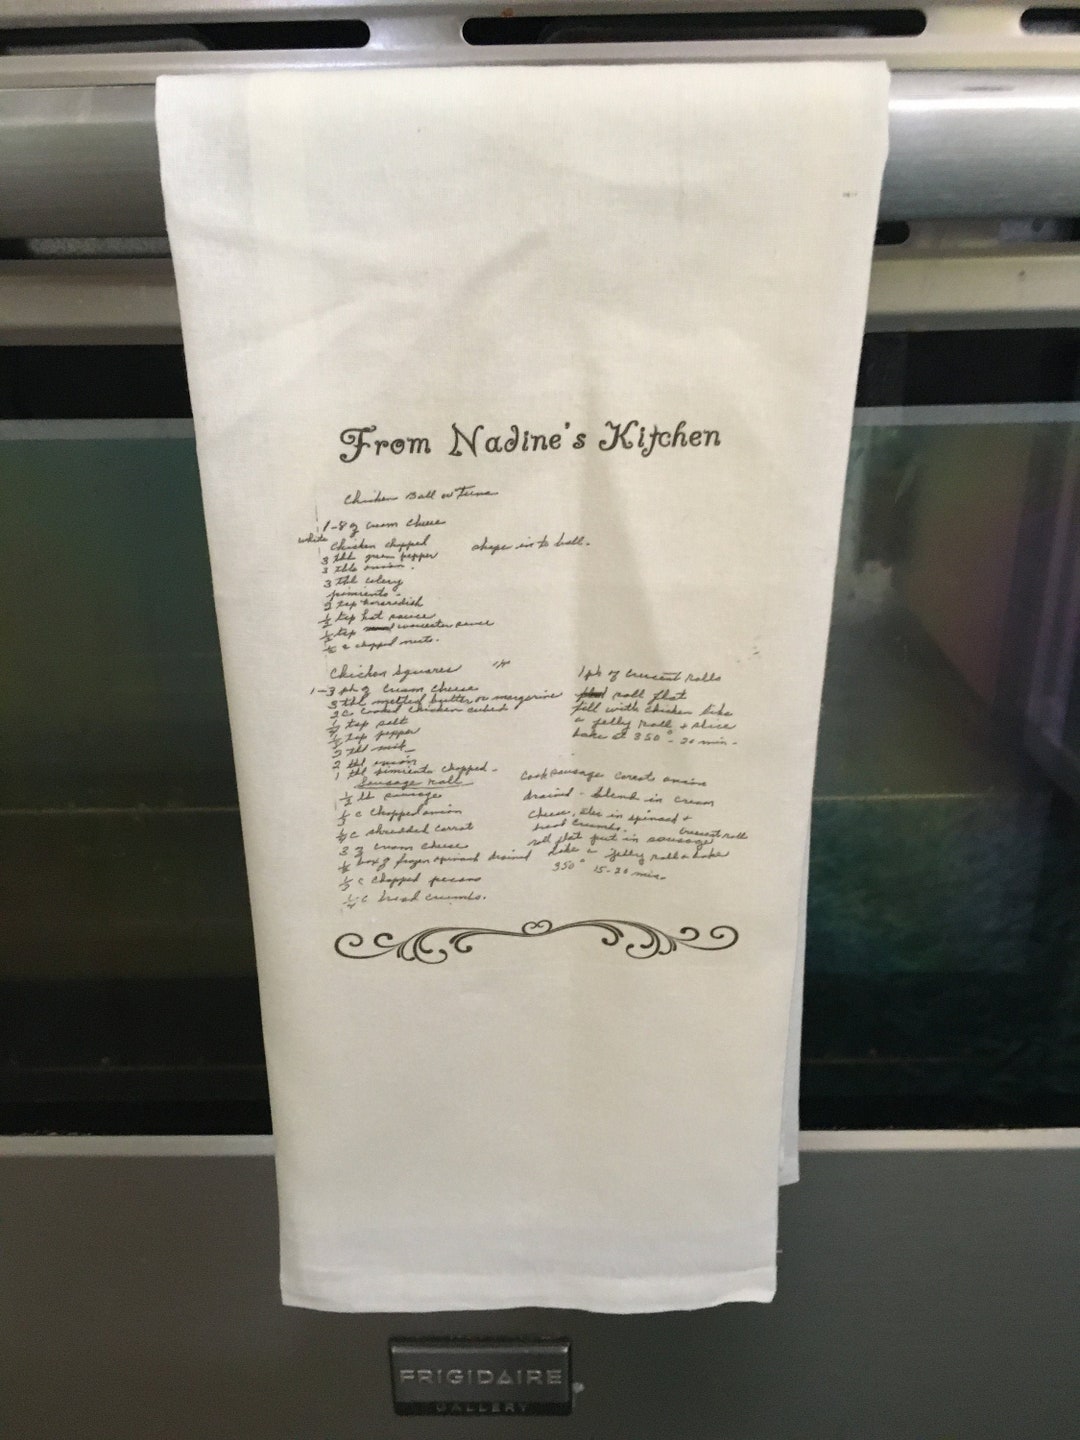 From Nadine's Kitchen
Chicken Ball or Tuna
1-8 z cream cheese
white chicken chopped
3 tbl green pepper
3 tbls onion.
3 tbl celery
pimiento -
2 tsp horseradish
½ tsp hot sauce
½ tsp worcester sauce
½ c chopped nuts.
shape in to ball.
Chicken Squares
1-3 pk z cream cheese
3 tbl melted butter or margerine
2 c cooked chicken cubed
tsp salt
tsp pepper
2 tbl milk
2 tbl onion
1 tbl pimiento chopped -
1 pk of crescent rolls
roll flat
fill with chicken like
a jelly roll + slice
bake at 350° - 20 min -
Sausage roll
½ lb sausage
c chopped onion
¼ c shredded carrot
3 z cream cheese
½ box z frozen spinach drained
c chopped pecans
¼ c bread crumbs.
Cook sausage carrots onions
drained - blend in cream
cheese, stir in spinach +
bread crumbs. crescent rolls
roll flat put in sausage
like a jelly roll & bake
350° 15-20 min.
FRIGIDAIRE
GALLERY